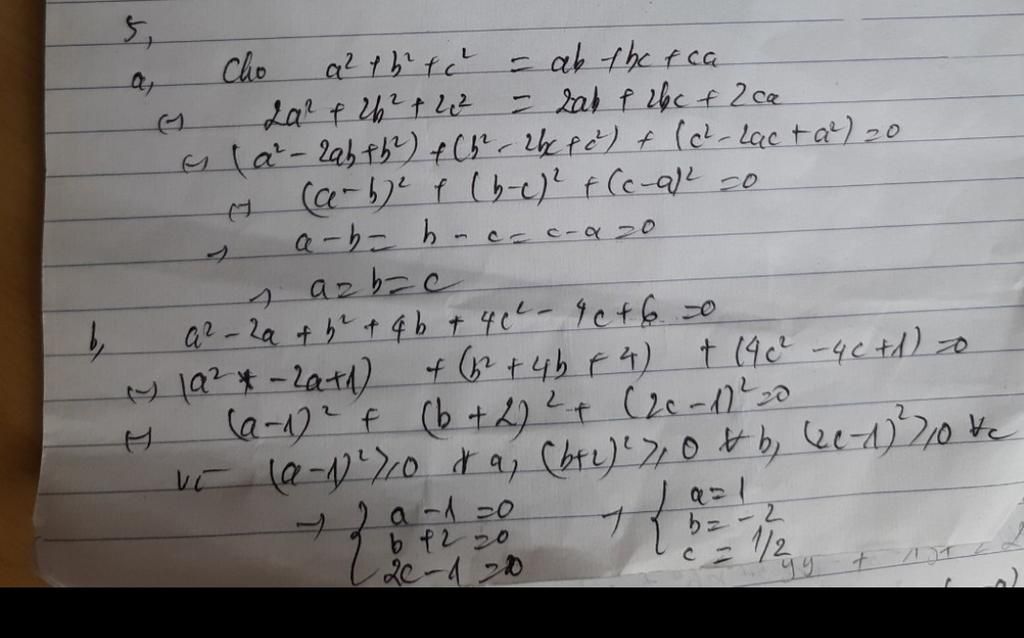 5,
a, Cho a² + b² + c² = ab + bc + ca
(=) 2a² + 2b² + 2c² = 2ab + 2bc + 2ca
(=) (a² - 2ab + b²) + (b² - 2bc + c²) + (c² - 2ac + a²) = 0
(=) (a-b)² + (b-c)² + (c-a)² = 0
→ a-b = b-c = c-a = 0
→ a = b = c
b, a² - 2a + b² + 4b + 4c² - 4c + 6 = 0
(=) (a² - 2a + 1) + (b² + 4b + 4) + (4c² - 4c + 1) = 0
(=) (a-1)² + (b+2)² + (2c-1)² = 0
vì (a-1)² ≥ 0 ∀ a, (b+2)² ≥ 0 ∀ b, (2c-1)² ≥ 0 ∀ c
→ { a - 1 = 0 → { a = 1
b + 2 = 0 b = -2
2c - 1 = 0 c = 1/2